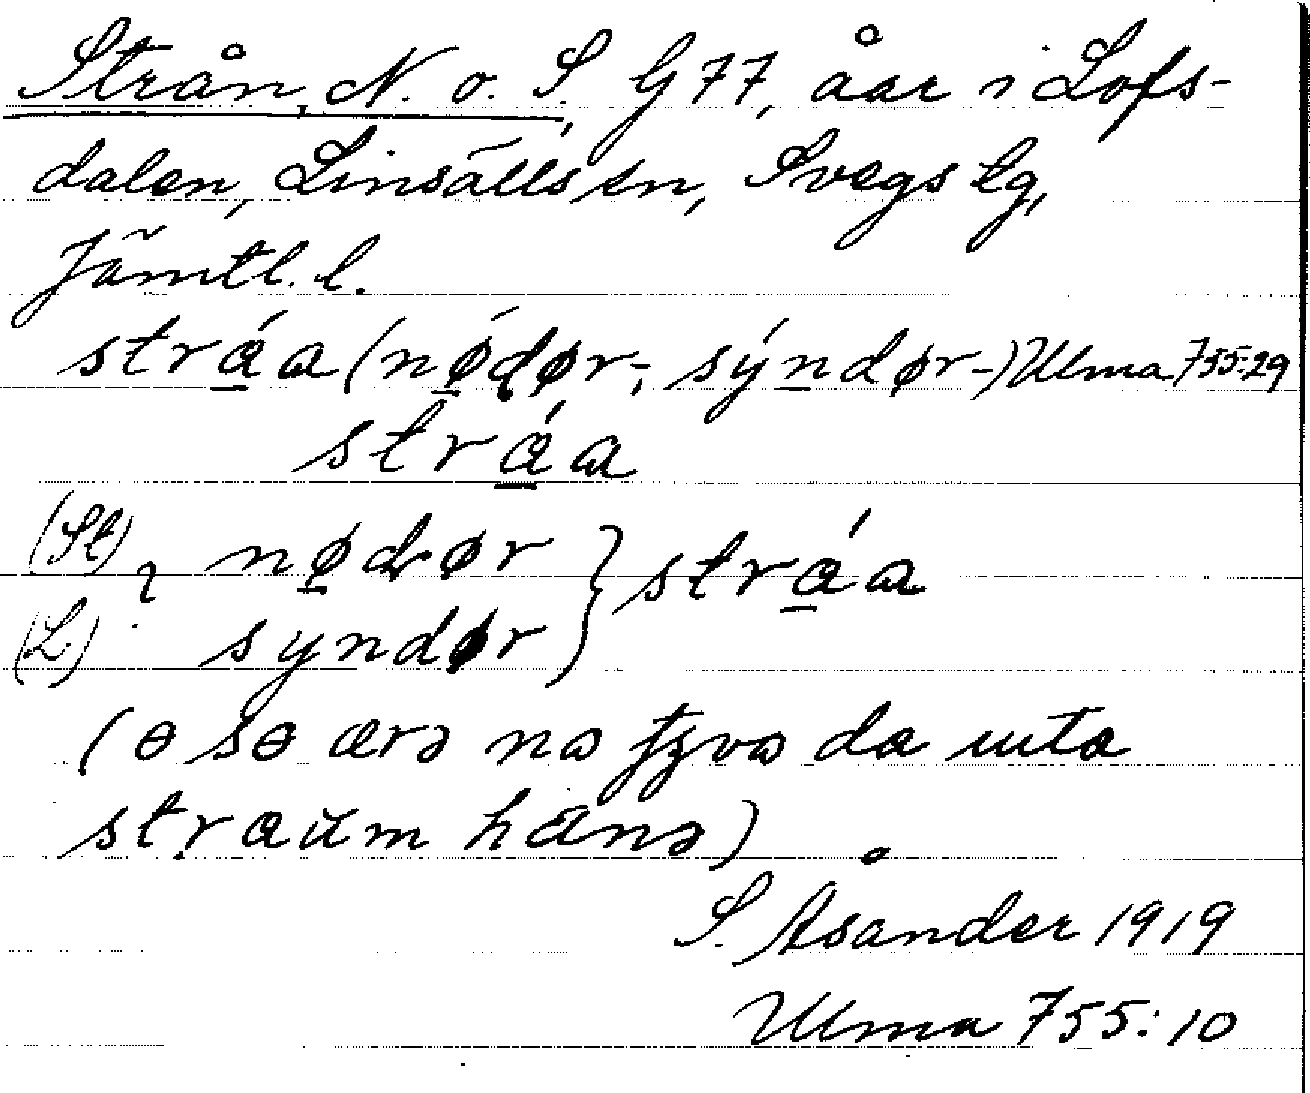 Strån, N. o. S., G 77, åar i Lofs-
dalen, Linsälls sn, Svegs tg,
Jämtl. l.
strá̱a (nǿ̱dør-, sýndør-) Ulma 755:29
strá̱a
(St) nø̱dør } strá̱a
(L.) syndør
(ɵ sɵ ærə na da uta
straum hænə)
S. Åsander 1919
Ulma 755:10